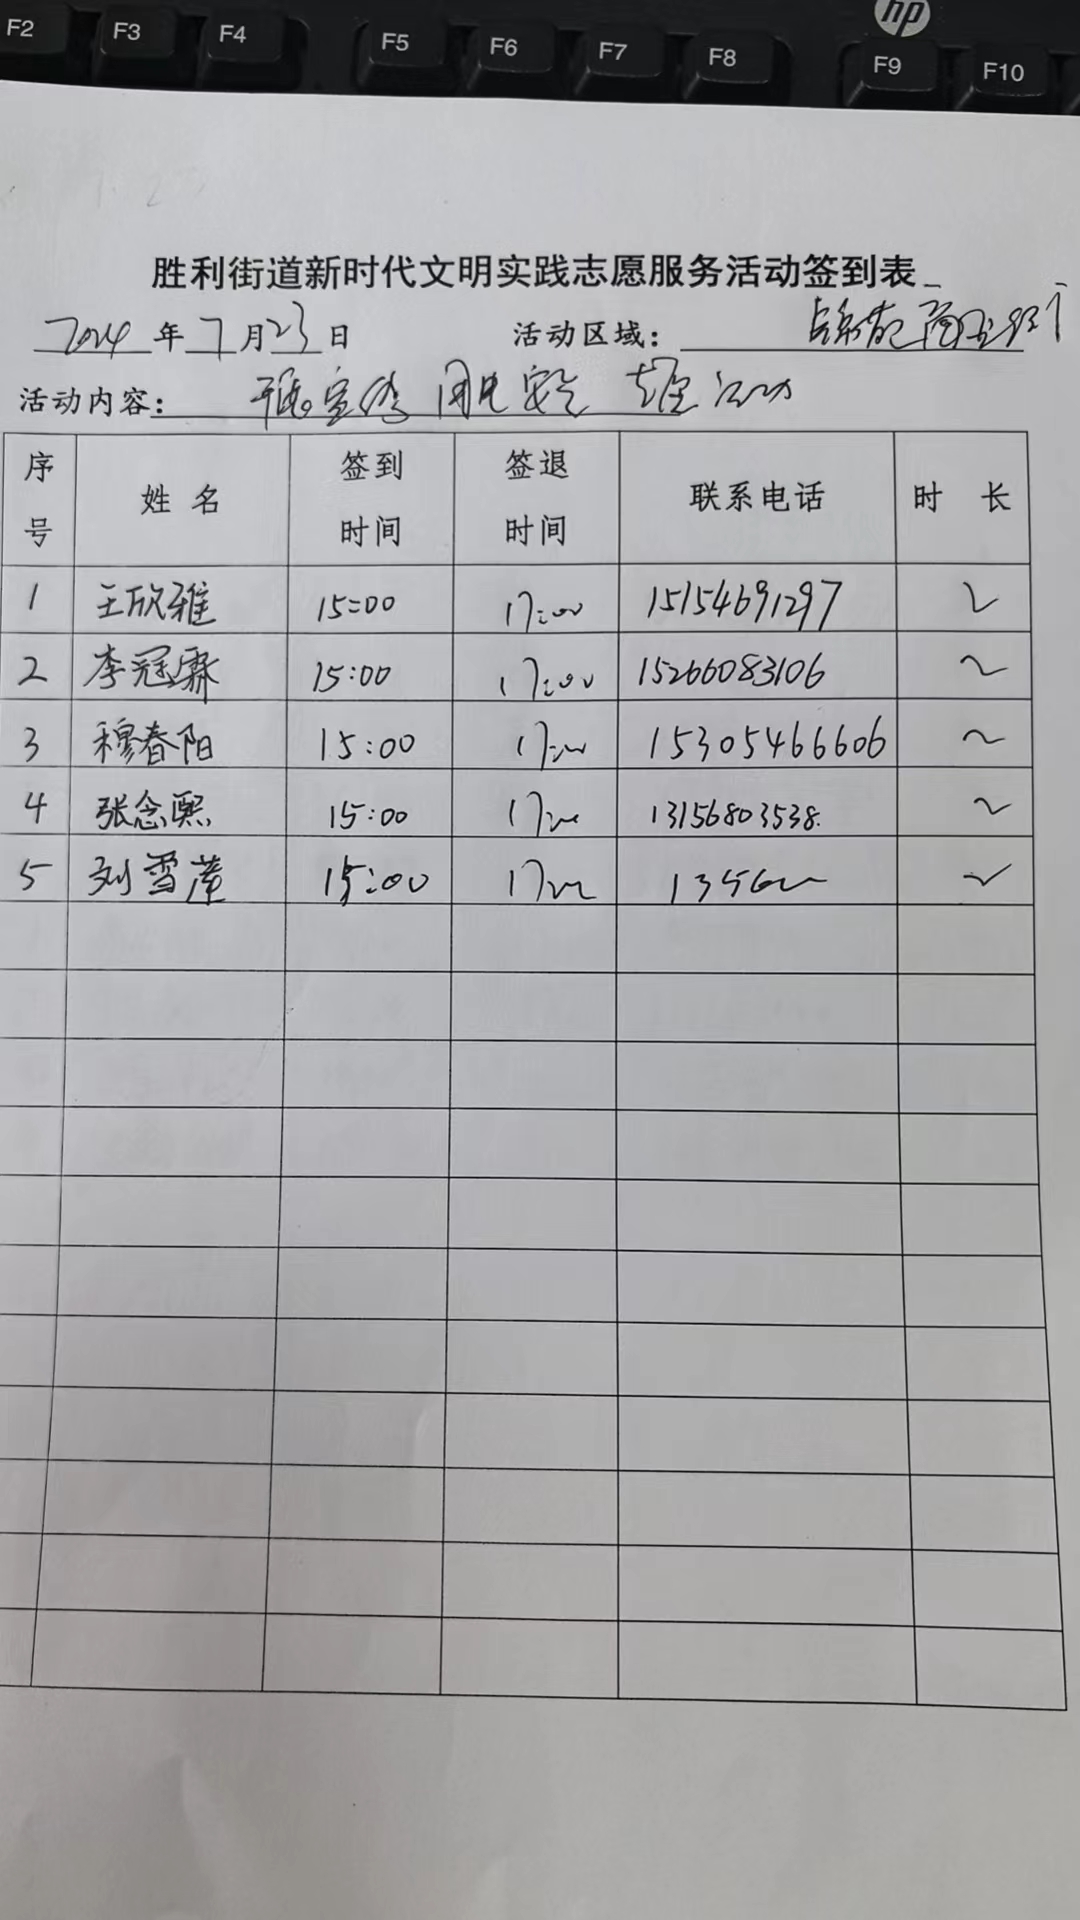 F2 F3 F4 F5 F6 F7 F8 F9 F10
hp
胜利街道新时代文明实践志愿服务活动签到表
2024年7月23日 活动区域：
活动内容： 用电安全
序号 姓名 签到时间 签退时间 联系电话 时长
1 王欣雅 15:00 17:00 15154691297 2
2 李冠霖 15:00 17:00 15266083106 2
3 穆春阳 15:00 17:00 15305466606 2
4 张念熙 15:00 17:00 13156803538 2
5 刘雪莲 15:00 17:00 2